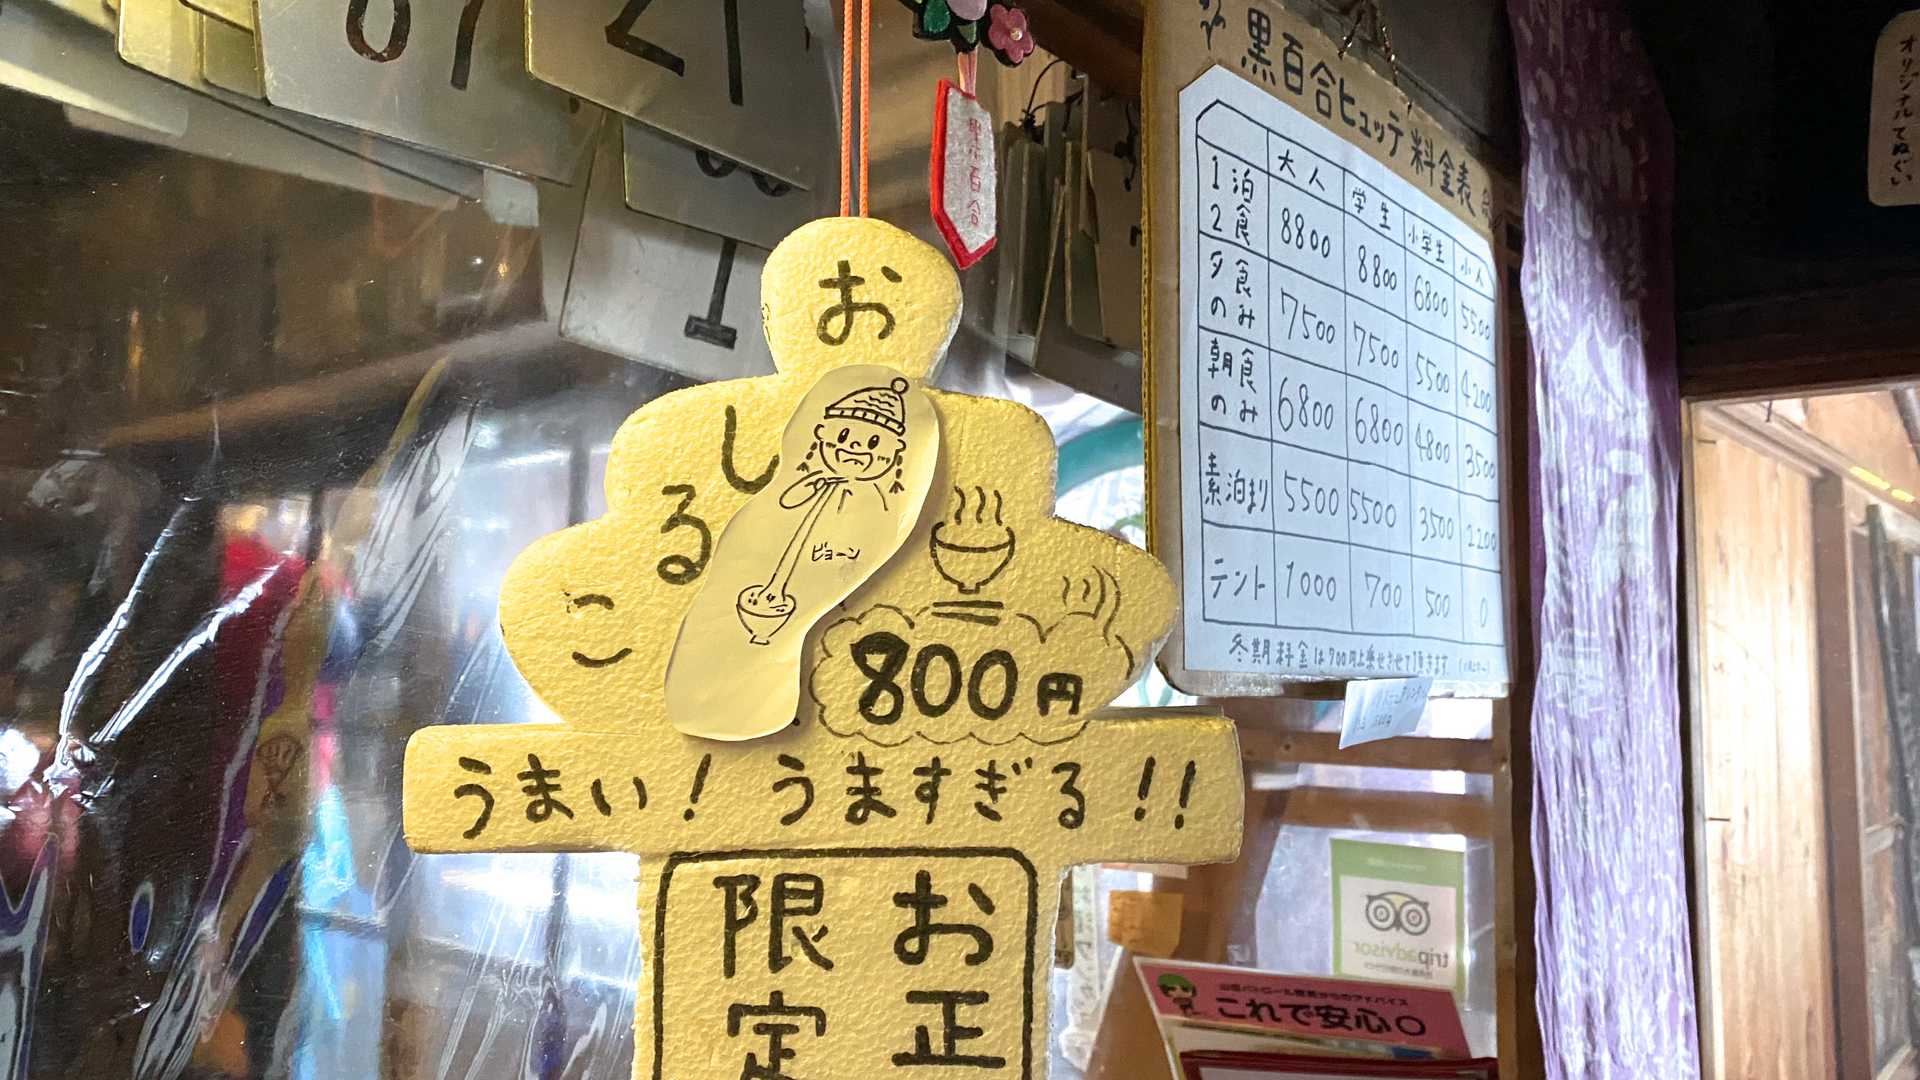 おしるこ
ビョーン
800円
うまい！うますぎる!!
お正
限定
黒百合ヒュッテ 料金表
大人 学生 小学生 小人
1泊2食 8800 8800 6800 5500
夕食のみ 7500 7500 5500 4200
朝食のみ 6800 6800 4800 3500
素泊まり 5500 5500 3500 2200
テント 1000 700 500 0
冬期料金は700円上乗せさせて頂きます
黒百合
21
オリジナルてぬぐい
tripadvisor
これで安心〇